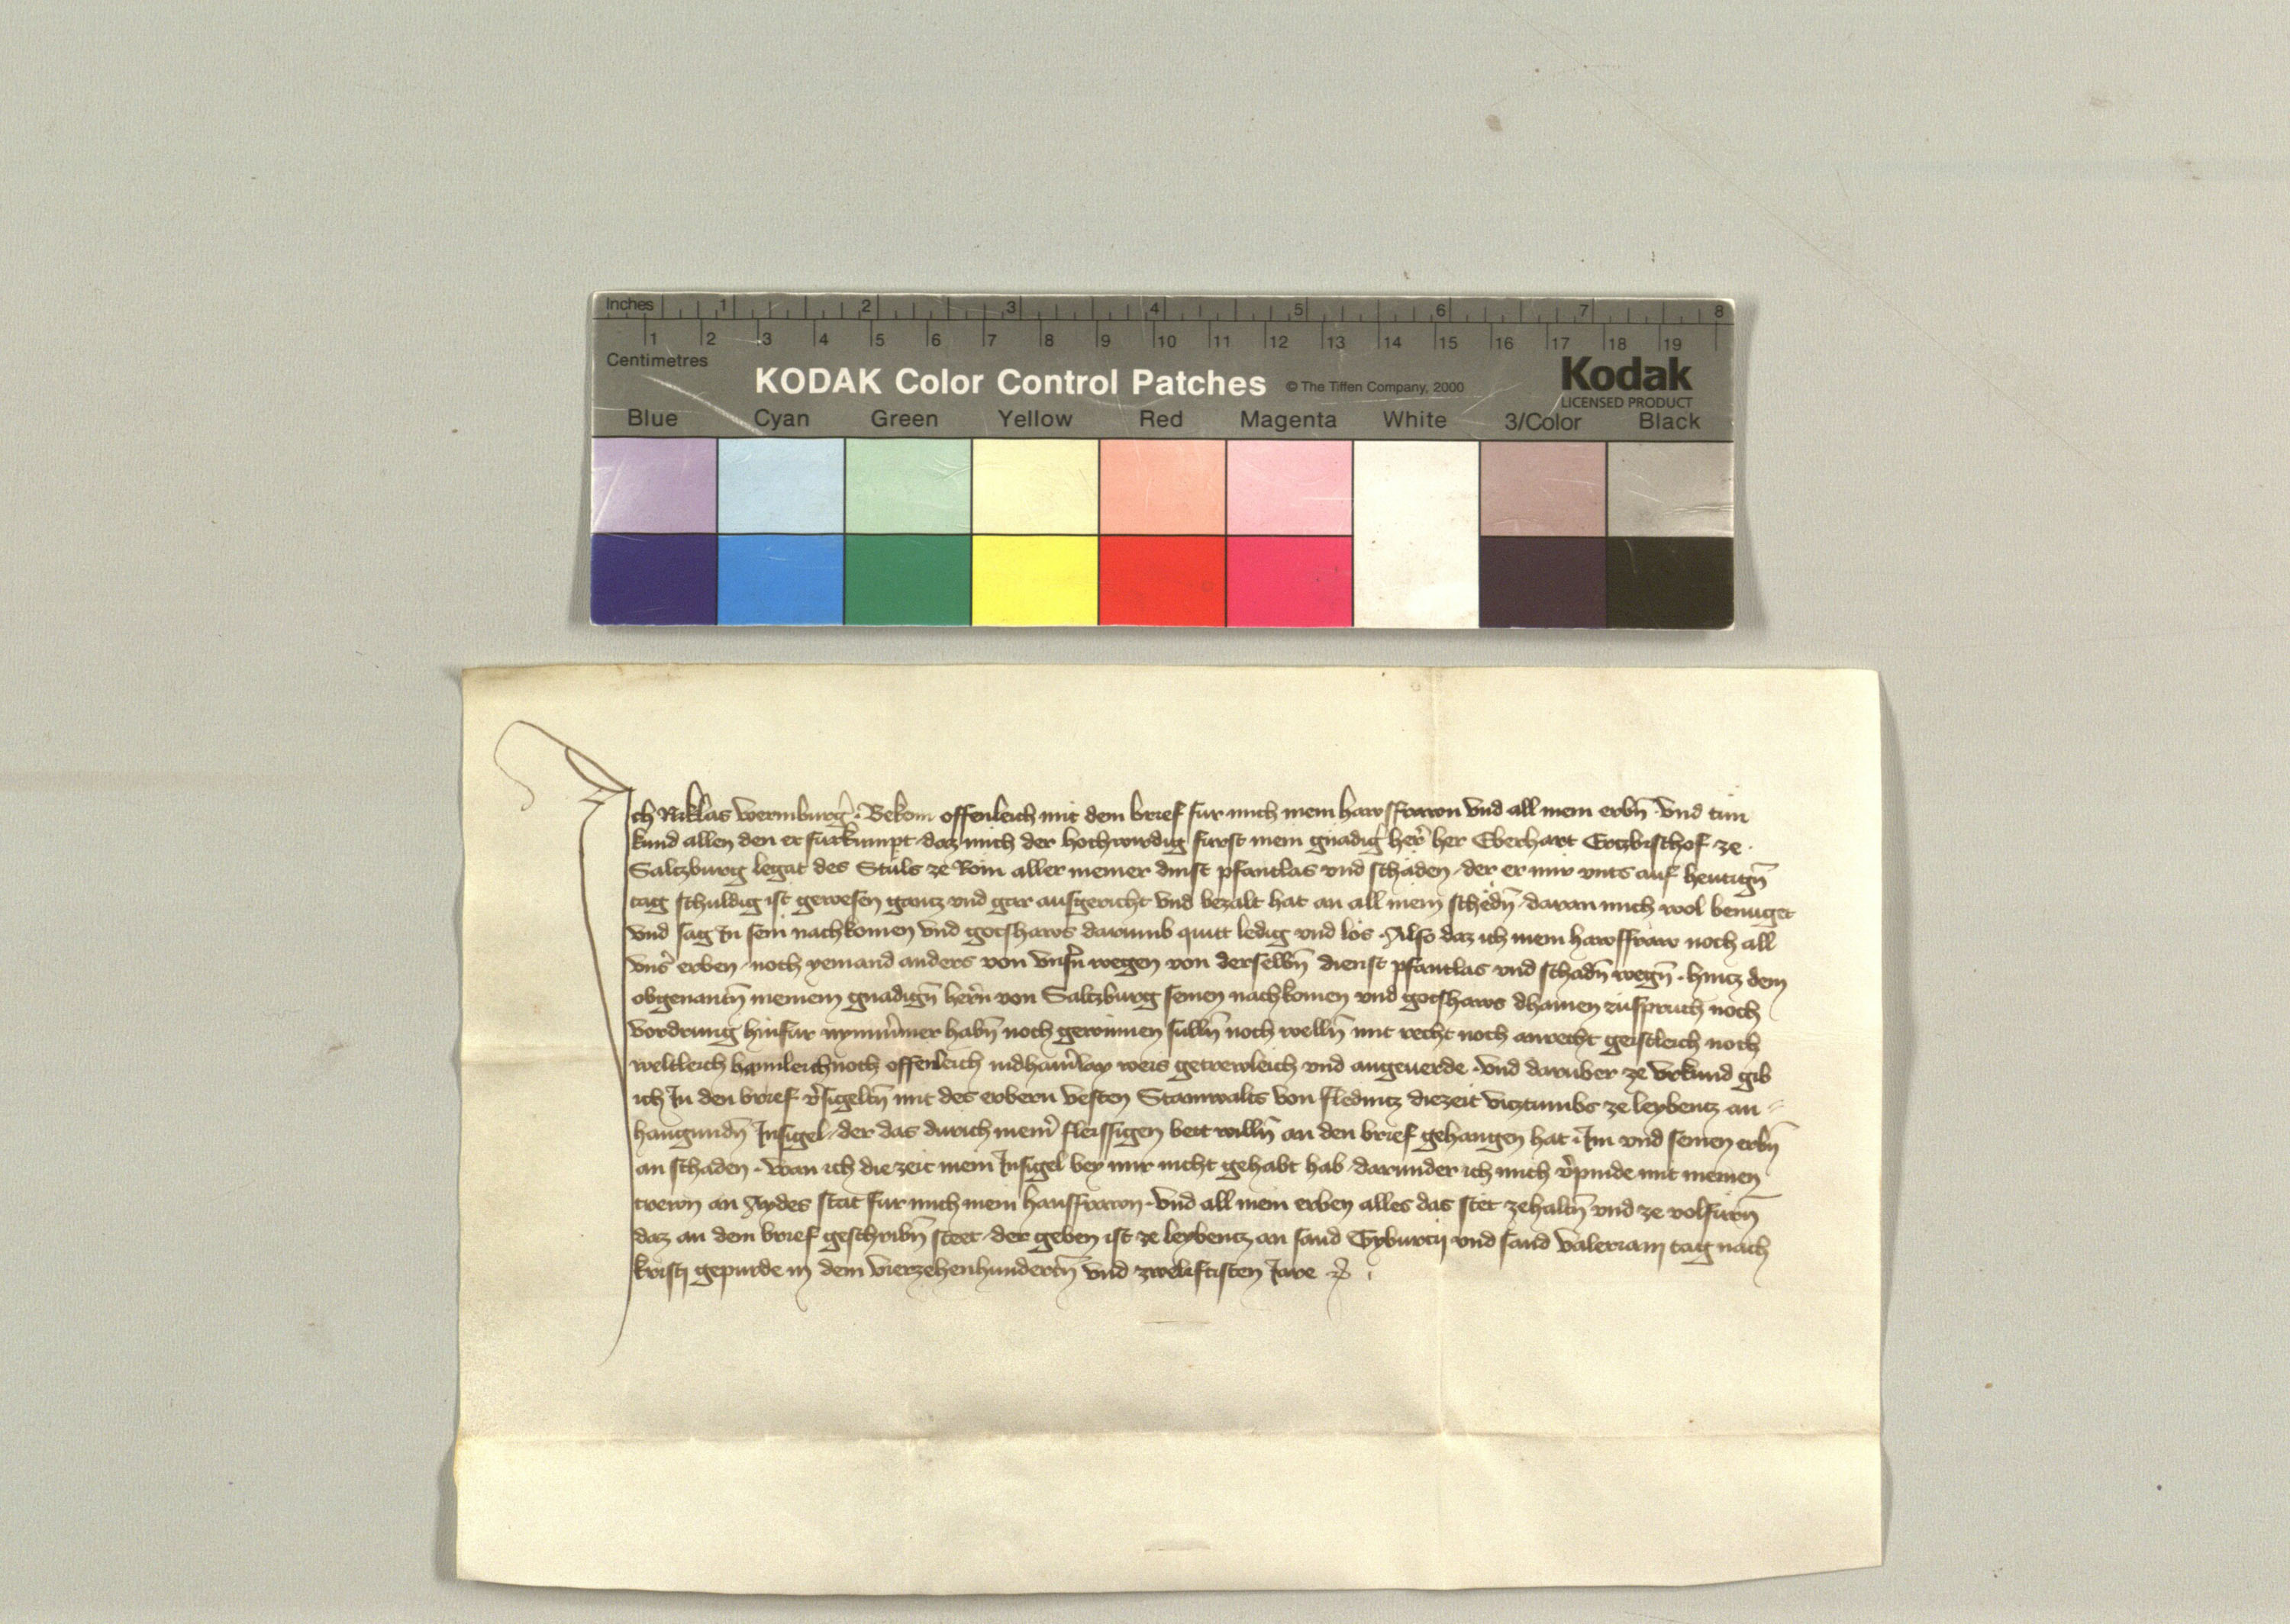 Inches 1 2 3 4 5 6 7 8
1 2 3 4 5 6 7 8 9 10 11 12 13 14 15 16 17 18 19
Centimetres
KODAK Color Control Patches © The Tiffen Company, 2000 Kodak
LICENSED PRODUCT
Blue Cyan Green Yellow Red Magenta White 3/Color Black
Ich Niklas Wermburg̉ · Bekenn offenleich mit dem brief fur mich mein hawsfrawn vnd all mein erbn̄ · vnd tun
kund allen den er furkumpt daz mich der hochwirdig furst mein gnadig her̉ her Eberhart Ertzbischof ze
Saltzburg legat des Stuls ze Rom aller meiner dinst pfantlas vnd schaden der er mir vnts auf heutign̄
tag schuldig ist gewesen gantz vnd gar ausgericht vnd bezalt hat an all mein schedn̄ daran mich wol benuget
vnd sag In sein nachkomen vnd gotshaws darumb quitt ledig vnd los · Also daz ich mein hawsfraw noch all
vns̉ erben noch yemand anders von vnsn̉ wegen von derselbn̄ dienst pfantlas vnd schadn̄ wegn̄ · hintz dem
obgenantn̄ meinem gnadign̄ hern̉ von Saltzburg seinen nachkomen vnd gotshaws dhainen zuspruch noch
vordrung hinfur nymmer habn̄ noch gewinnen sulln̄ noch welln̄ mit recht noch anrecht geistleich noch
weltleich haimleich noch offenleich indhainlay weis getrewleich vnd angeuerde · vnd daruber ze vrkund gib
ich In den brief v̉sigeltn̄ mit des erbern vesten Stainwalts von Flednitz diezeit vitztumbs ze leybentz an
hangundn̄ Insigel der das durich mein̉ fleissigen bett willn̄ an den brief gehangen hat · Im vnd seinen erbn̄
an schaden · wan ich die zeit mein Insigel bey mir nicht gehabt hab darunder ich mich v̉pinde mit meinen
trewn an Aydes stat fur mich mein hausfrawn · vnd all mein erben alles das stet zehaltn̄ vnd ze volfurn̄
daz an dem brief geschribn̄ stett der geben ist ze leybentz an sand Tyburtij vnd sand Valeriani tag nach
kristi gepurde in dem vierzehenhundertn̄ vnd zweliftisten Jare